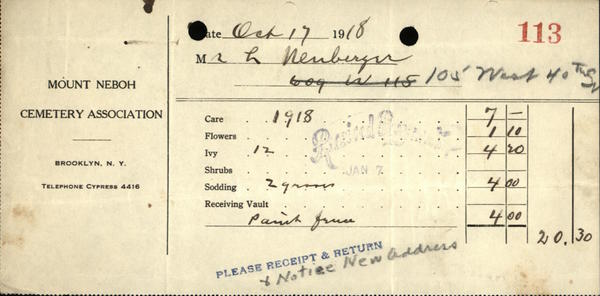 Date Oct 17 1918
113
Mr L Neuberger
105 West 40th St
MOUNT NEBOH
CEMETERY ASSOCIATION
BROOKLYN, N. Y.
TELEPHONE CYPRESS 4416
Care 1918 7 —
Flowers 1 10
Ivy 12 4 20
Shrubs
Sodding 2 graves 4 00
Receiving Vault
Paint fence 4 00
20.30
Received Payment
JAN 7
PLEASE RECEIPT & RETURN
& Notice New address